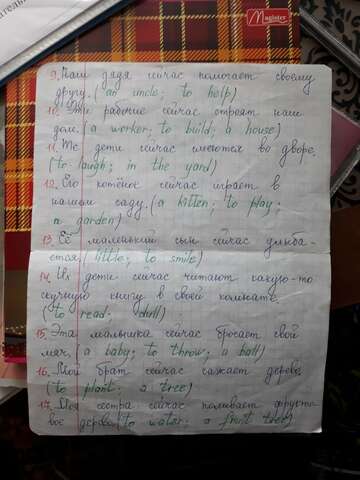 Magister
9. Наш дядя сейчас помогает своему
другу. (an uncle; to help)
10. Эти рабочие сейчас строят наш
дом. (a worker; to build; a house)
11. Те дети сейчас смеются во дворе.
(to laugh; in the yard)
12. Его котёнок сейчас играет в
нашем саду. (a kitten; to play;
a garden)
13. Её маленький сын сейчас улыба-
ется. (little; to smile)
14. Их дети сейчас читают какую-то
скучную книгу в своей комнате.
(to read; dull)
15. Эта малышка сейчас бросает свой
мяч. (a baby; to throw; a ball)
16. Мой брат сейчас сажает дерево.
(to plant; a tree)
17. Моя сестра сейчас поливает фрукто-
вое дерево. (to water; a fruit tree)